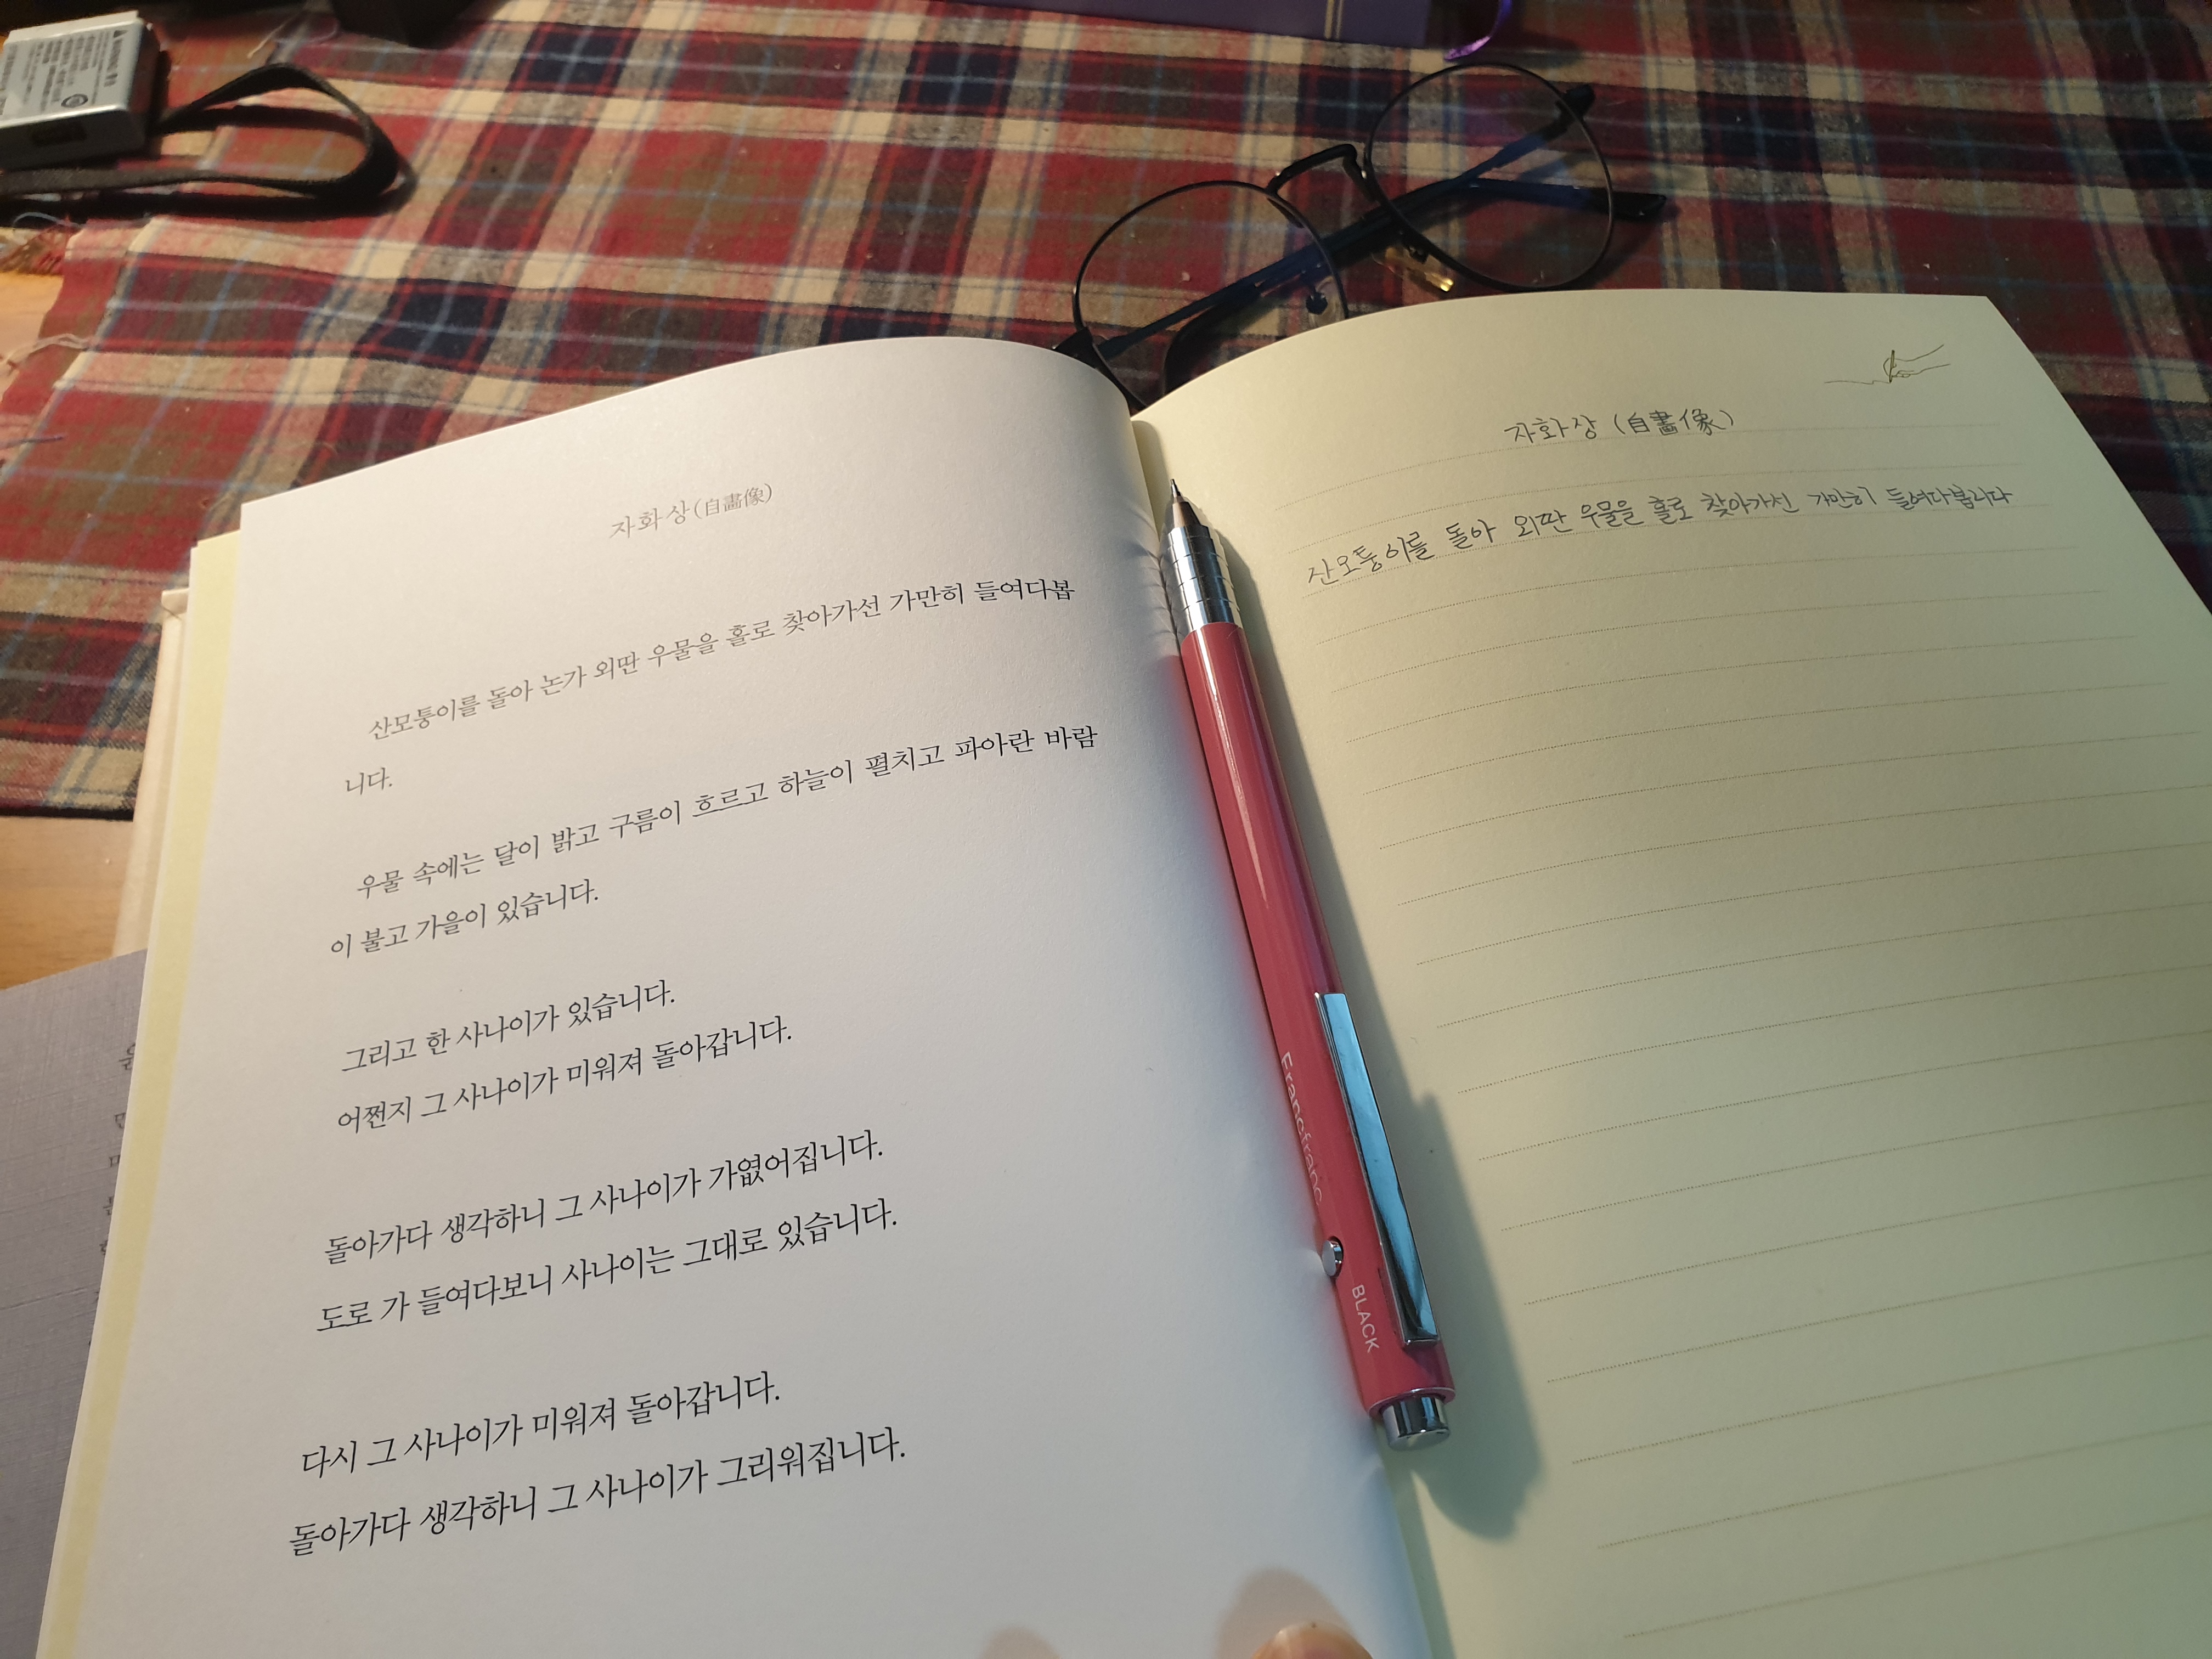 자화상(自畵像)
산모퉁이를 돌아 논가 외딴 우물을 홀로 찾아가선 가만히 들여다봅
니다.
우물 속에는 달이 밝고 구름이 흐르고 하늘이 펼치고 파아란 바람
이 불고 가을이 있습니다.
그리고 한 사나이가 있습니다.
어쩐지 그 사나이가 미워져 돌아갑니다.
돌아가다 생각하니 그 사나이가 가엾어집니다.
도로 가 들여다보니 사나이는 그대로 있습니다.
다시 그 사나이가 미워져 돌아갑니다.
돌아가다 생각하니 그 사나이가 그리워집니다.
자화상 (自畵像)
산모퉁이를 돌아 외딴 우물을 홀로 찾아가선 가만히 들여다봅니다
Francfranc
BLACK